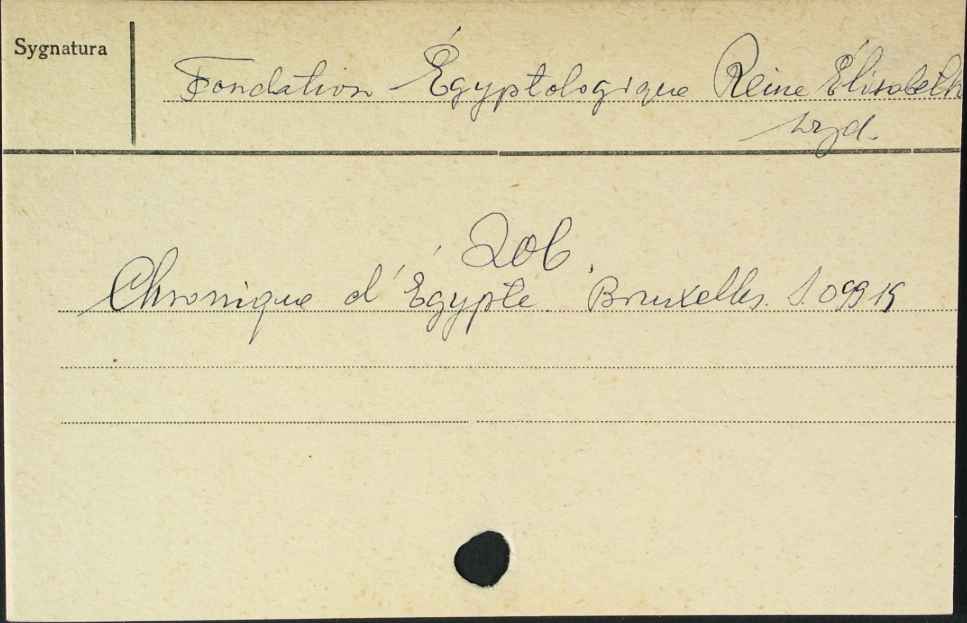 Sygnatura
Fondation Égyptologique Reine Élisabeth
wyd.
Zob.
Chronique d'Égypte. Bruxelles. S 09919